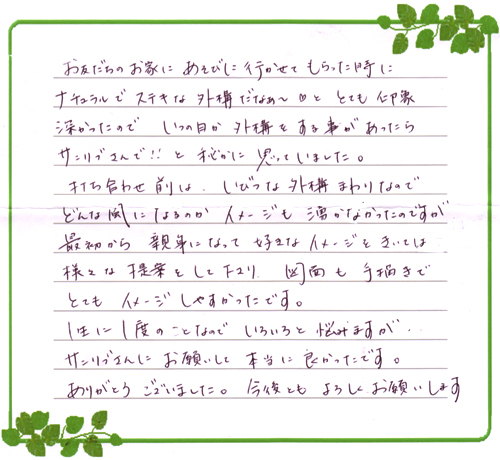 お友だちのお家に あそびに行かせてもらった時に
ナチュラルで ステキな 外構だなぁ〜♡と とても 印象
深かったので いつの日か 外構を する事があったら
サンリブさんで!! と 秘かに 思っていました。
打ち合わせ前は、いびつな 外構まわりなので
どんな風に なるのか イメージも 湧かなかったのですが
最初から 親身になって 好きな イメージを きいては
様々な 提案をして下さり 図面も 手描きで
とても イメージ しやすかったです。
1生に1度のことなので いろいろと 悩みますが..
サンリブさんに お願いして 本当に 良かったです。
ありがとう ございました。 今後とも よろしく お願いします